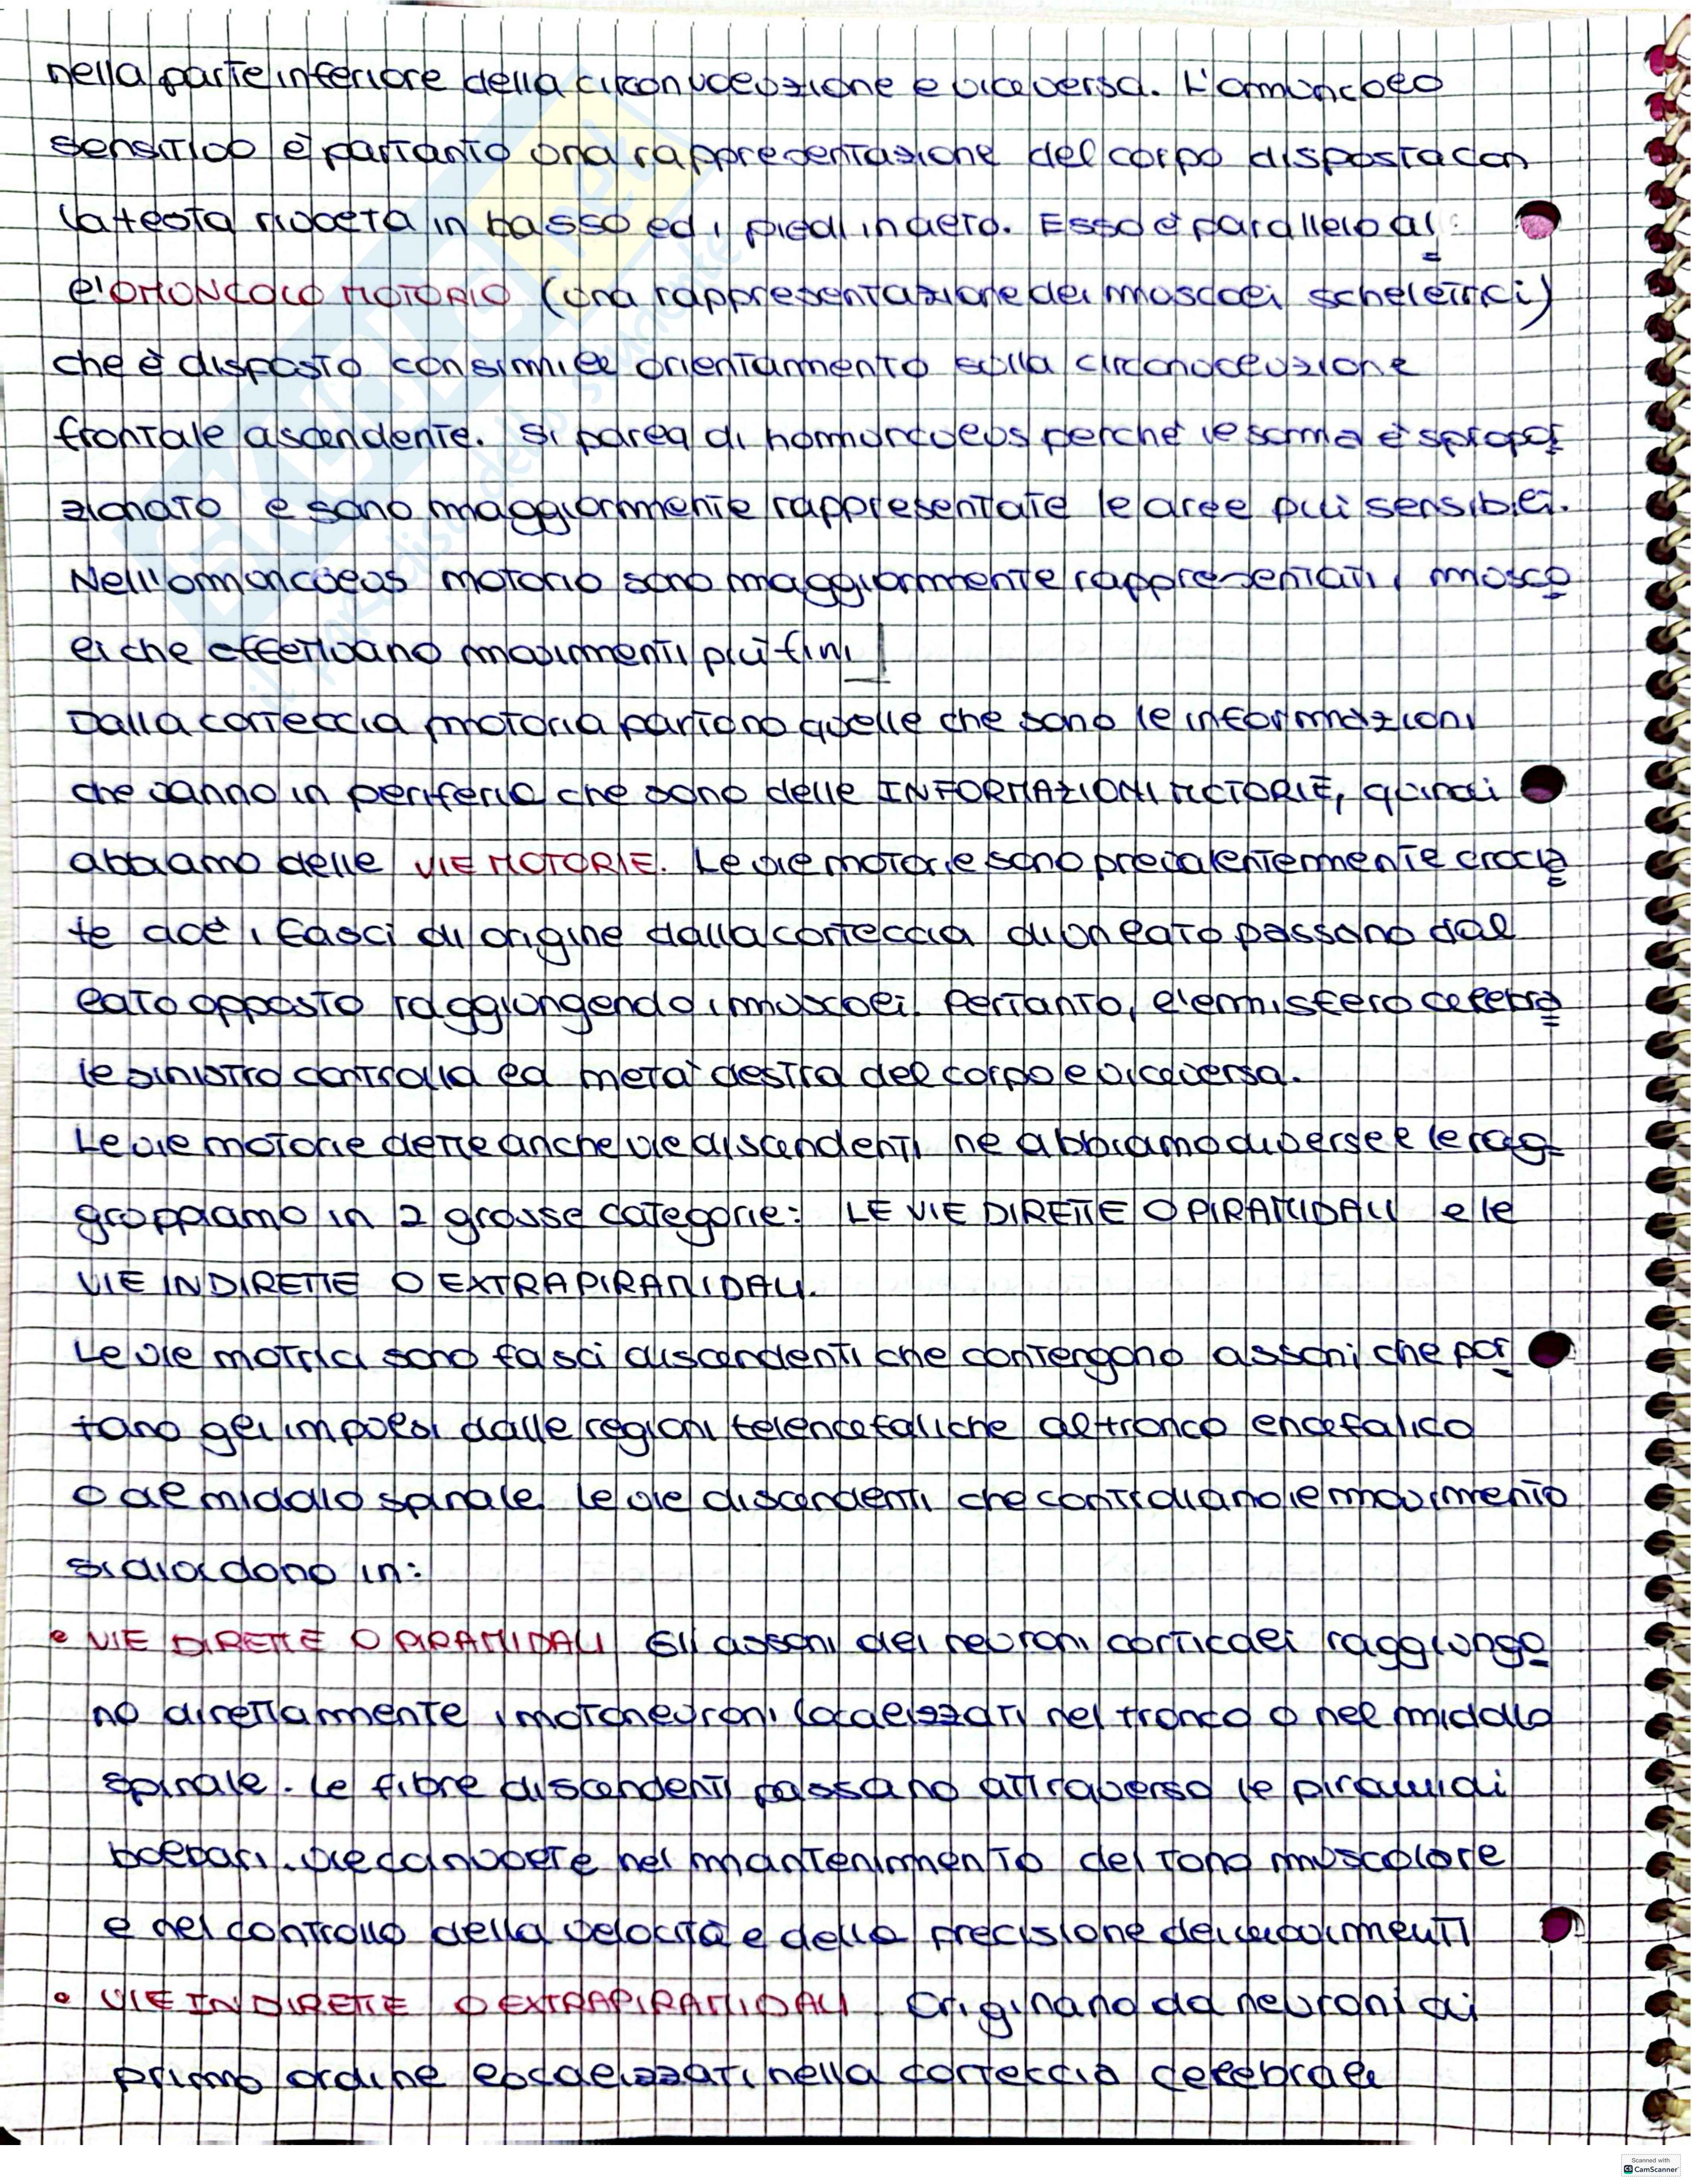 nella parte inferiore della circonvoluzione e viceversa. L'omuncolo
sensitivo è partanto una rappresentazione del corpo disposta con
la testa rivolta in basso ed i piedi in alto. Esso è parallelo al
l'OMUNCOLO MOTORIO (una rappresentazione dei muscoli scheletrici)
che è disposto con simile orientamento sulla circonvoluzione
frontale ascendente. Si parla di homunculus perché il soma è spropor
zionato e sono maggiormente rappresentate le aree più sensibili.
Nell'omunculus motorio sono maggiormente rappresentati i musco
li che effettuano movimenti più fini
Dalla corteccia motoria partono quelle che sono le informazioni
che vanno in periferia che sono delle INFORMAZIONI MOTORIE, quindi
abbiamo delle VIE MOTORIE. Le vie motorie sono prevalentemente crocia
te cioè i fasci di origine dalla corteccia di un lato passano dal
lato opposto raggiungendo i muscoli. Pertanto, l'emisfero cerebra
le sinistro controlla la metà destra del corpo e viceversa.
Le vie motorie dette anche vie discendenti ne abbiamo diverse e le rag-
groppiamo in 2 grosse categorie: LE VIE DIRETTE O PIRAMIDALI e le
VIE INDIRETTE O EXTRAPIRAMIDALI.
Le vie motrici sono fasci discendenti che contengono assoni che por
tano gli impulsi dalle regioni telencefaliche al tronco encefalico
o al midollo spinale. Le vie discendenti che controllano il movimento
si dividono in:
• VIE DIRETTE O PIRAMIDALI Gli assoni dei neuroni corticali raggiungo
no direttamente i motoneuroni localizzati nel tronco o nel midollo
spinale. Le fibre discendenti passano attraverso le piramidi
bulbari. Vie coinvolte nel mantenimento del tono muscolare
e nel controllo della velocità e della precisione dei movimenti
• VIE INDIRETTE O EXTRAPIRAMIDALI. Originano da neuroni di
primo ordine localizzati nella corteccia cerebrale
SKUOLA.net
il paradiso dello studente
Scanned with
CS CamScanner